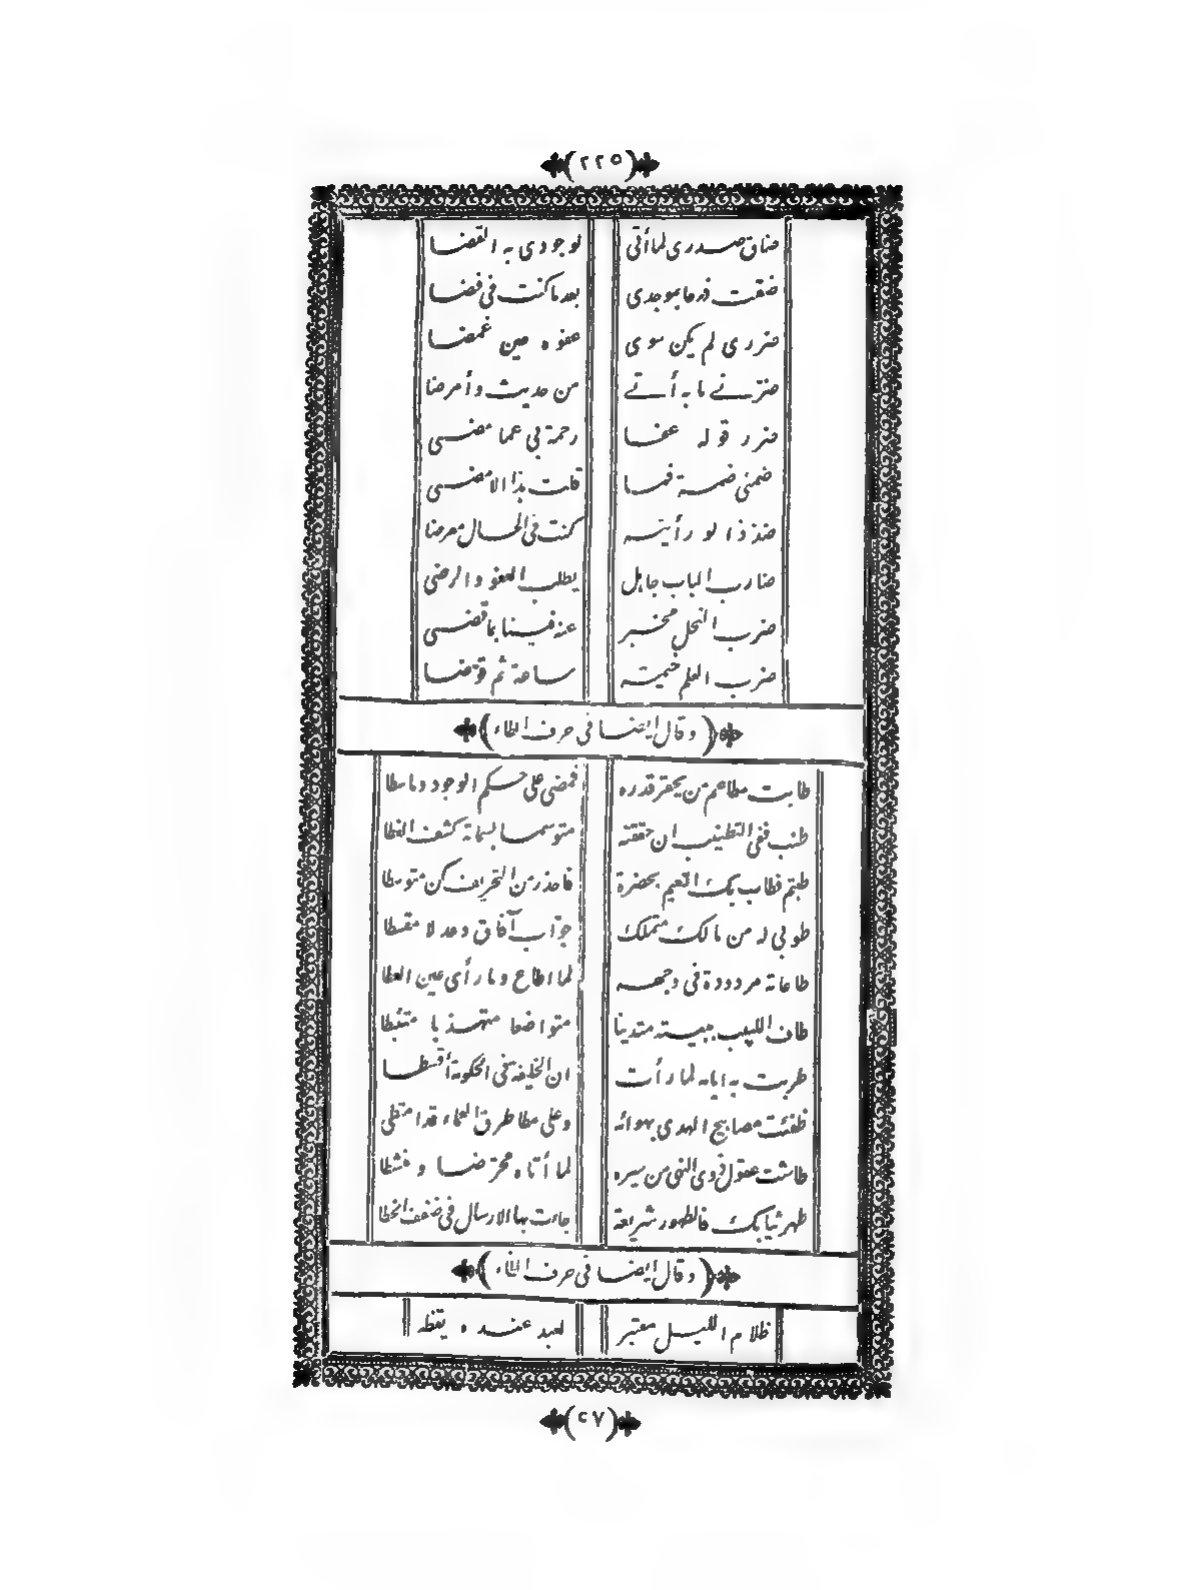 (٢٢٥)
ضاق صدرى لما أتى لوجودى به القضا
ضقت ذرعا بموجدى بعد ما كنت فى فضا
ضررى لم يكن سوى عفوه مين غمضا
ضرّنى ما به أتى من حديث وأمرضا
ضرر قوله عفا رحمة بى عما مضى
ضمنى ضمة فما قلت بذا الا مضى
ضد ذا لو رأيته كنت فى الحال معرضا
ضارب الباب جاهل يطلب العفو والرضى
ضرب النحل مخبر عنه فينا بما قضى
ضرب العلم خيمته ساعة ثم قوّضا
(وقال أيضا فى حرف الطاء)
طابت مطاعم من يحقر قدره فمضى على حكم الوجود وما سطا
طنب ففى التطنيب ان حققته متوسما بسمائة كشف الغطا
طبتم فطاب بك النعيم بحضرة فاحذر من التحريف كن متوسطا
طوبى له من مالك متملك جوّاب آفاق وعدلا مقسطا
طاعاته مردودة فى وجهه لما اطاع وما رأى عين العطا
طاف اللبيب ببيته متدينا متواضعا متهذبا متثبطا
طربت به اباته لما رأت ان الخليفة فى الحكومة أقسطا
طفئت مصابيح الهدى بهوائه وعلى مطا طرق العماء قد امتطى
طاشت عقول ذوى النهى من سيره لما أتاه محرّضا ومنشطا
طهر ثيابك فالطهور شريعة جاءت بها الارسال فى ضعف الخطا
(وقال أيضا فى حرف الظاء)
ظلام الليل معتبر لعبد عنده يقظه
(٢٧)